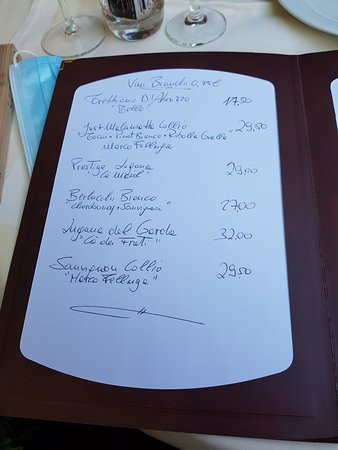 Vini Bianchi 0,75l
Trebbiano D'Abruzzo 17,50
Just Molamatta Collio 29,50
Tocai + Pinot Bianco + Ribolla Gialla
Marco Felluga
Prestige Lugana 29,00
Bertucchi Bianco 27,00
Chardonnay + Sauvignon
Lugana del Garda 32,00
"Cà dei Frati"
Sauvignon Collio 29,50
"Marco Felluga"